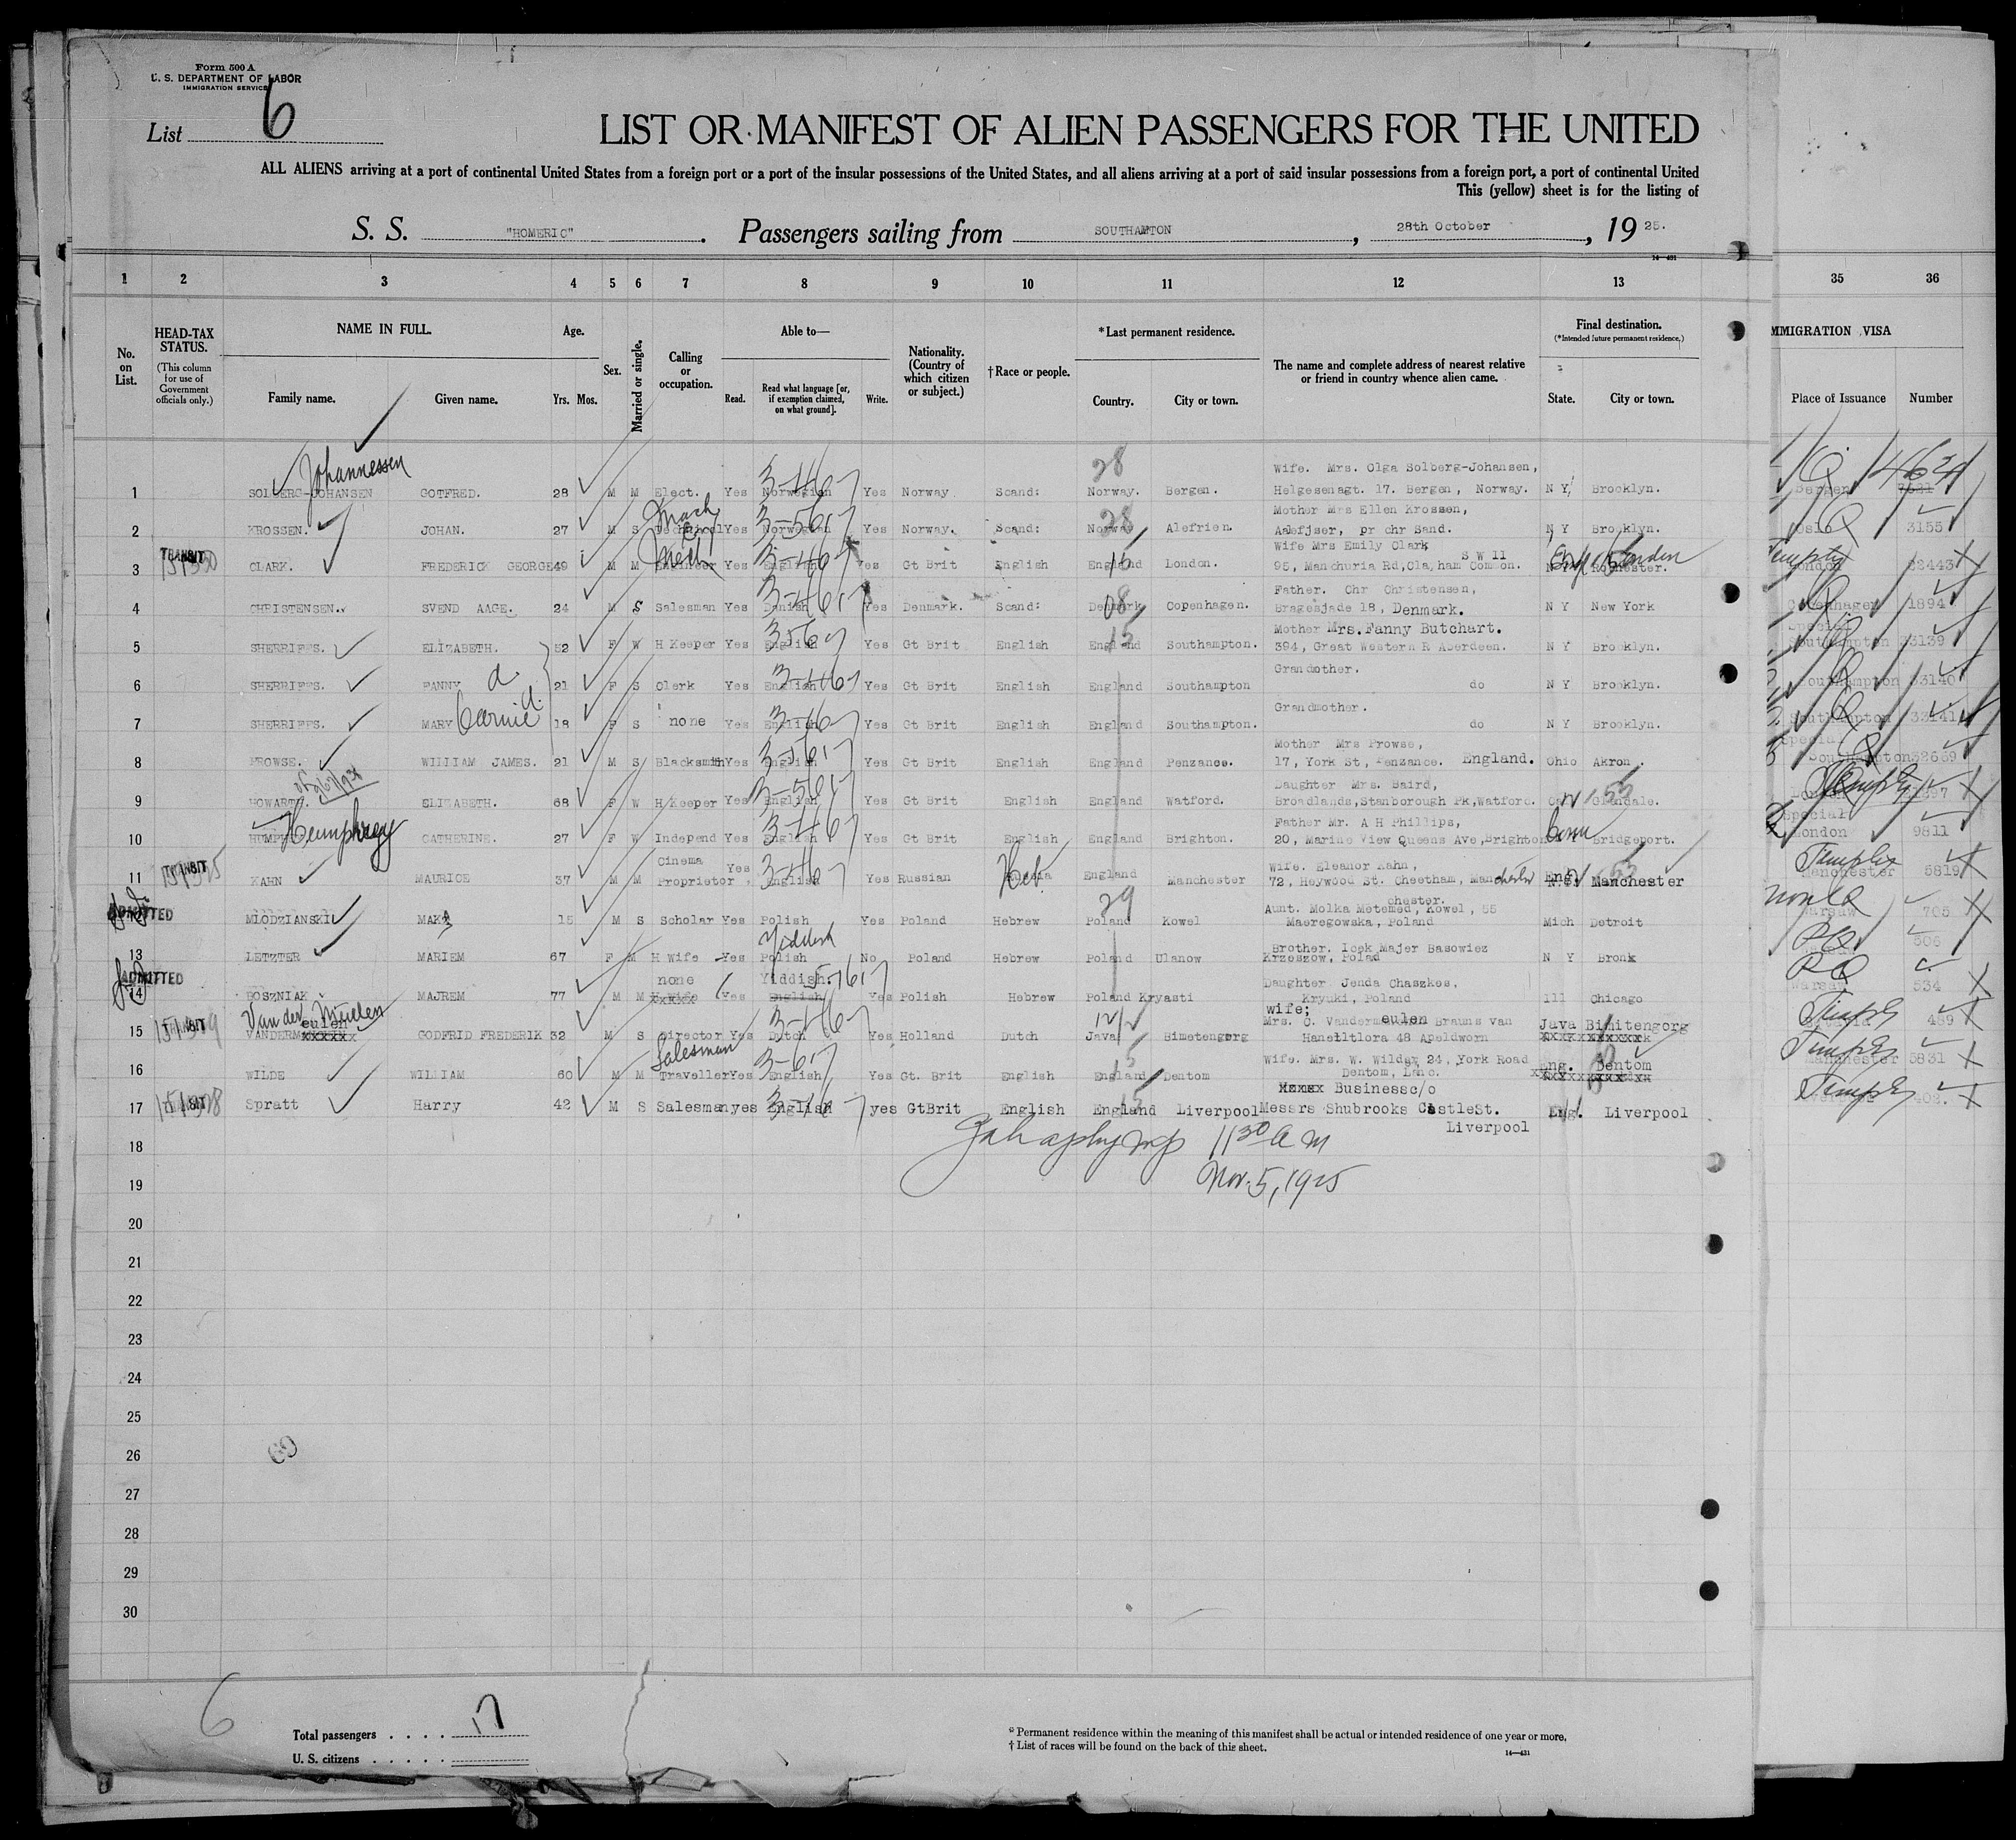 Form 500 A
U. S. DEPARTMENT OF LABOR
IMMIGRATION SERVICE
List 6
LIST OR MANIFEST OF ALIEN PASSENGERS FOR THE UNITED
ALL ALIENS arriving at a port of continental United States from a foreign port or a port of the insular possessions of the United States, and all aliens arriving at a port of said insular possessions from a foreign port, a port of continental United
This (yellow) sheet is for the listing of
S. S. "HOMERIC". Passengers sailing from SOUTHAMTON, 28th October, 19 25.
14—431
1 2 3 4 5 6 7 8 9 10 11 12 13 35 36
No. on List.
HEAD-TAX STATUS.
(This column for use of Government officials only.)
NAME IN FULL.
Family name. Given name.
Age.
Yrs. Mos.
Sex.
Married or single.
Calling or occupation.
Able to—
Read. Read what language [or, if exemption claimed, on what ground]. Write.
Nationality. (Country of which citizen or subject.)
† Race or people.
*Last permanent residence.
Country. City or town.
The name and complete address of nearest relative or friend in country whence alien came.
Final destination.
(*Intended future permanent residence.)
State. City or town.
IMMIGRATION VISA
Place of Issuance Number
Johannessen 3-46 28 Wife. Mrs. Olga Solberg-Johansen,
1 SOLBERG-JOHANSEN GOTFRED. 28 M M Elect. Yes Norwegian Yes Norway Scand: Norway. Bergen. Helgesenagt. 17. Bergen, Norway. N Y Brooklyn. Bergen
Mother Mrs Ellen Krossen,
2 KROSSEN. JOHAN. 27 M S Yes Norwegian Yes Norway. Scand: Norway Alefrien. Aalefjser, pr chr Sand. N Y Brooklyn. Oslo 3155
TRANSIT Wife Mrs Emily Clark S W 11
3 CLARK. FREDERICK GEORGE 49 M M Engineer Yes English Yes Gt Brit English England London. 95, Manchuria Rd, Cla,ham Common. N Y Rochester. London 32443
Father. Chr Christensen,
4 CHRISTENSEN. SVEND AAGE. 24 M S Salesman Yes Danish Yes Denmark. Scand: Denmark Copenhagen. Bragesjade 18, Denmark. N Y New York Copenhagen 1894
Mother Mrs. Fanny Butchart. Special
5 SHERRIFFS. ELIZABETH. 52 F W H Keeper Yes English Yes Gt Brit English England Southampton. 394, Great Western R Aberdeen. N Y Brooklyn. Southampton 33139
Grandmother.
6 SHERRIFFS. FANNY d. 21 F S Clerk Yes English Yes Gt Brit English England Southampton do N Y Brooklyn. Southampton 33140
Grandmother.
7 SHERRIFFS. MARY 18 F S none Yes English Yes Gt Brit English England Southampton. do N Y Brooklyn. Southampton 33141
Mother Mrs Prowse, Special
8 PROWSE. WILLIAM JAMES. 21 M S Blacksmith Yes English Yes Gt Brit English England Penzance. 17, York St, Penzance. England. Ohio Akron. Southampton 32639
Daughter Mrs. Baird,
9 HOWARTH. ELIZABETH. 68 F W H Keeper Yes English Yes Gt Brit English England Watford. Broadlands, Stanborough Pk, Watford. Glendale. London
Humphrey Father Mr. A H Phillips, Special
10 CATHERINE. 27 F W Independ Yes English Yes Gt Brit English England Brighton. 20, Marine View Queens Ave, Brighton Conn Bridgeport. London 9811
TRANSIT Cinema Wife. Eleanor Kahn,
11 KAHN MAURICE 37 M M Proprietor Yes English Yes Russian Heb. England Manchester 72, Heywood St. Cheetham, Manchester Eng. Manchester Manchester 5819
ADMITTED 29 Aunt. Molka Metemed, Kowel, 55
12 MLODZIANSKI 15 M S Scholar Yes Polish Yes Poland Hebrew Poland Kowel Maeregowska, Poland Mich Detroit Warsaw 705
Yiddish Brother. Icek Majer Basowiez
13 LETZTER MARIEM 67 F M H Wife Yes Polish No Poland Hebrew Poland Ulanow Krzeszow, Polad N Y Bronx
ADMITTED none Yiddish Daughter Jenda Chaszkes,
14 BOSZNIAK MAJREM 77 M M Yes English Yes Polish Hebrew Poland Kryasti Kryuki, Poland Ill Chicago Warsaw 534
Van der Meulen eulen wife;
15 VANDERM GODFRID FREDERIK 32 M S Director Yes Dutch Yes Holland Dutch Java Bimetengorg Mrs. C. Vanderm eulen Brauns van Hanetltlora 48 Apeldworn Java Bimitengorg 489
Salesman Wife. Mrs. W. Wilder 24, York Road
16 WILDE WILLIAM 60 M M Traveller Yes English Yes Gt. Brit English England Dentom Dentom, Lanc. Eng. Dentom Manchester 5831
TRANSIT Business c/o
17 Spratt Harry 42 M S Salesman yes English yes GtBrit English England Liverpool Messrs Shubrooks CastleSt. Liverpool Eng. Liverpool
11 30 A M
Nov. 5, 1925
18
19
20
21
22
23
24
25
26
27
28
29
30
6
Total passengers . . . . . 17
U. S. citizens . . . . .
* Permanent residence within the meaning of this manifest shall be actual or intended residence of one year or more.
† List of races will be found on the back of this sheet.
14—431